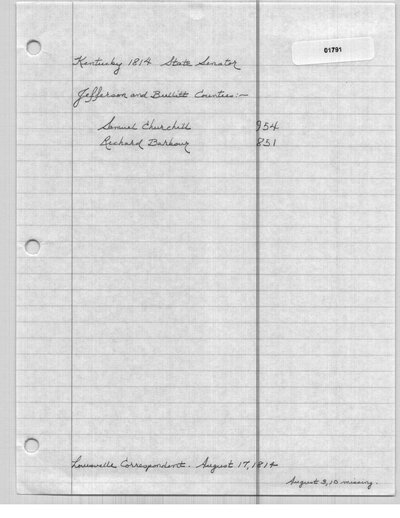 01791
Kentucky 1814 State Senator
Jefferson and Bullitt Counties:—
Samuel Churchill 954
Richard Barbour 851
Louisville Correspondent. August 17, 1814
August 3, 10 missing.